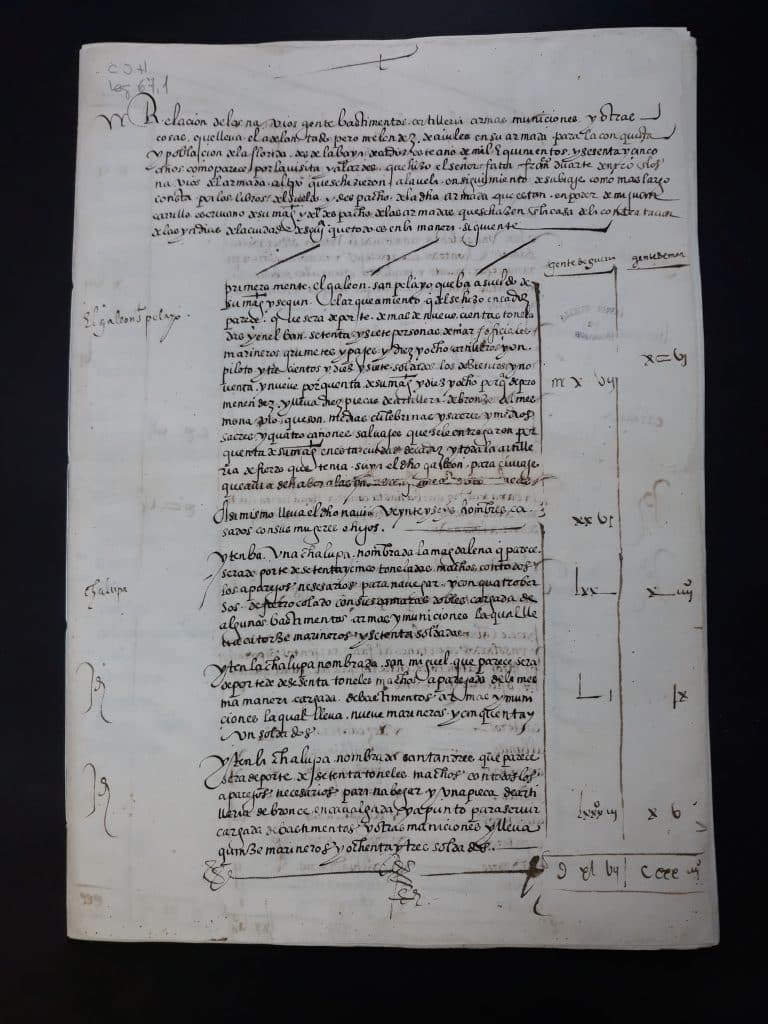 C D H
Leg 67.1
Relacion de los navios gente bastimentos artilleria armas municiones y otras
cosas que lleva el adelantado pero melendez de aviles en su armada para la conquista
y poblacion de la florida desde la baya de cadiz este año de mil e quinientos y sesenta y cinco
años como parece por la visita y alarde que hizo el señor fator francisco duarte en los
navios del armada al que se hizieron a la vela en siguimiento de su biaje como mas largo
consta por los libros del sueldo y despacho de la dha armada que estan en poder de
carillo escrivano de su mag y del despacho de las armadas que se hazen en la casa de la contratacion
de las yndias de la ciudad de que todo es en la manera siguiente
gente de guerra gente de mar
El galeon s pelayo
primeramente el galeon san pelayo que ba a sueldo de
su mag y segun el arqueamiento q del se hizo en cadiz
parece que sera de porte de mas de nuevecientas tonela
das y en el ban setenta y siete personas de mar oficiales
marineros grumetes y pajes y diez y ocho artilleros y un
piloto y trecientos y diez y siete soldados los dozientos y no
venta y nueve por quenta de su mag y diez y ocho por de pero
menendez y lleva diez piecas de artilleria de bronze del mes
mo navio que son medias culebrinas y sacres y medios
sacres y quatro cañones salvajes que se le entregaron por
quenta de su mag en esta ciudad de cadiz y toda la artille
ria de fierro que tenia suya el dho galeon para el viaje
que avia de hazer a las
m x vij
x = vj
Asi mismo lleva el dho navio veynte y seys hombres ca
sados con sus mugeres e hijos
xx vj
chalupa
yten ba una chalupa nombrada la magdalena q parece
sera de porte de setenta y cinco toneladas machos con todos
los aparejos nesesarios para navegar y con quatro ber
sos de fierro colado con sus camaras dobles cargada de
algunos bastimentos armas y municiones la qual lle
va catorze marineros y setenta soldados
Lxx
x iiijº
yten la chalupa nombrada san miguel que parece sera
de porte de sesenta toneles machos aparejada de la mes
ma manera cargada de bastimentos armas y muni
ciones la qual lleva nueve marineros y cinquenta y
un soldados
L j
ix
yten la chalupa nombrada santandres que parece
sera de porte de setenta toneles machos con todos los
aparejos necesarios para nabegar y una pieca de arti
lleria de bronce encavalgada y a punto para servir
cargada de bastimentos y otras municiones y lleva
quinze marineros y ochenta y tres soldados
Lxxxº iij
x b